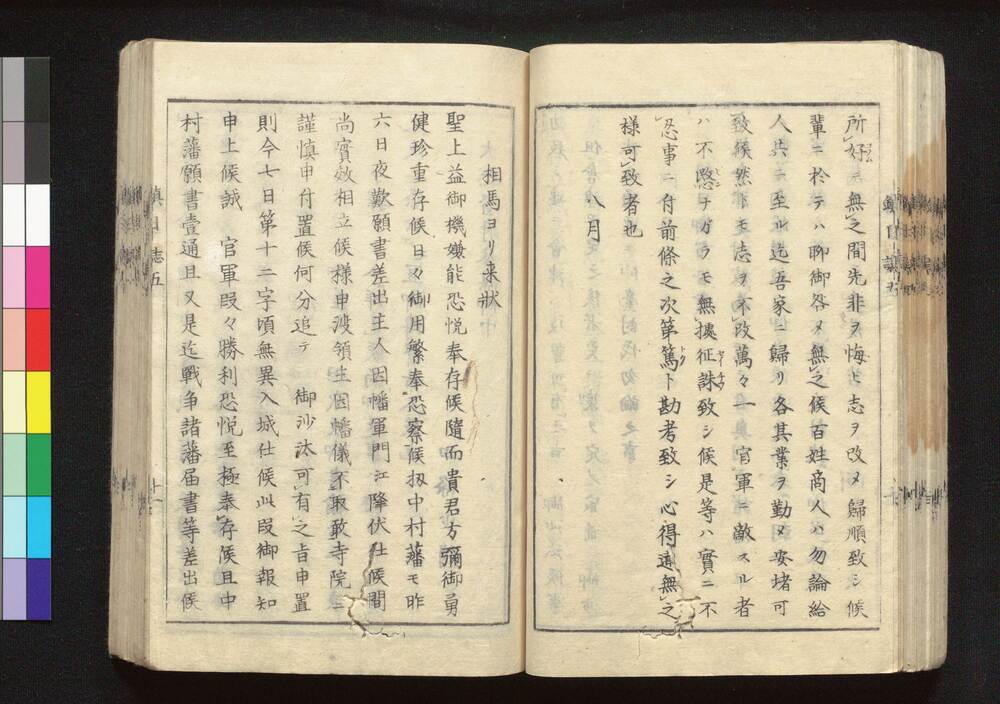 所好無之間先非ヲ悔ヒ志ヲ改メ歸順致シ候
輩ニ於テハ聊御咎メ無之候百姓商人ハ勿論給
人共ニ至ル迄吾家ニ歸リ各其業ヲ勤メ安堵可
致候然トモ志ヲ不改萬々一官軍ニ敵スル者
ハ不愍ナガラモ無據征誅致シ候是等ハ實ニ不
忍事ニ付前條之次第篤ト勘考致シ心得違無之
様可致者也
八月
相馬ヨリ来狀
聖上益御機嫌能恐悦奉存候隨而貴君方彌御勇
健珍重存候日々御用繁奉恐察候扨中村藩モ昨
六日夜歎願書差出主人因幡軍門江降伏仕候間
尚實效相立候様申渡領主因幡儀不取敢寺院ニ
謹慎申付置候何分追テ 御沙汰可有之旨申置
則今七日第十二字頃無異入城仕候此段御報知
申上候誠 官軍段々勝利恐悦至極奉存候且中
村藩願書壹通且又是迄戰争諸藩届書等差出候
鎮日志五